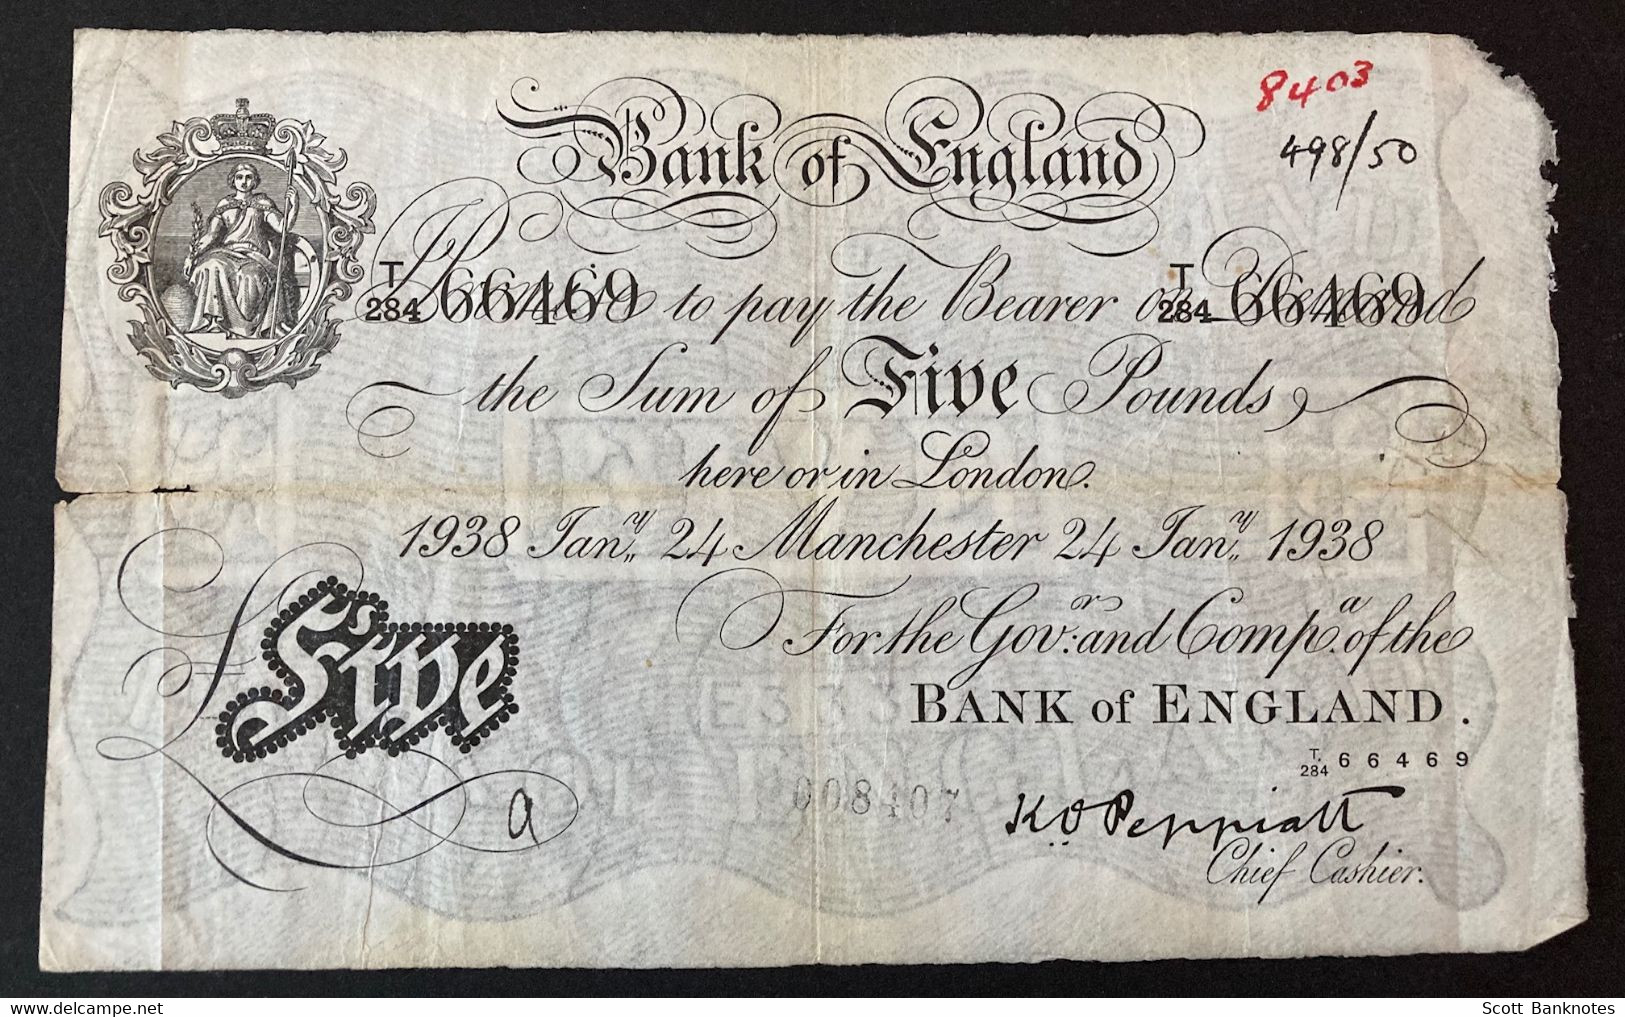 8403
498/50
Bank of England
T/284 66469 T/284 66469
I Promise to pay the Bearer on Demand
the Sum of Five Pounds
here or in London.
1938 Jany. 24 Manchester 24 Jany. 1938
For the Govr. and Compa. of the
BANK of ENGLAND.
£ Five
T. 284 66469
008407
a
K O Peppiatt
Chief Cashier.
Scott Banknotes